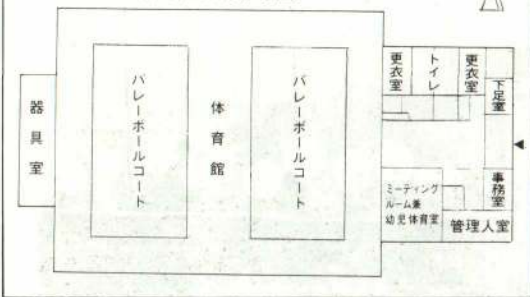 器具室
バレーボールコート
体育館
バレーボールコート
更衣室
トイレ
更衣室
下足室
ミーティング
ルーム兼
幼児体育室
事務室
管理人室